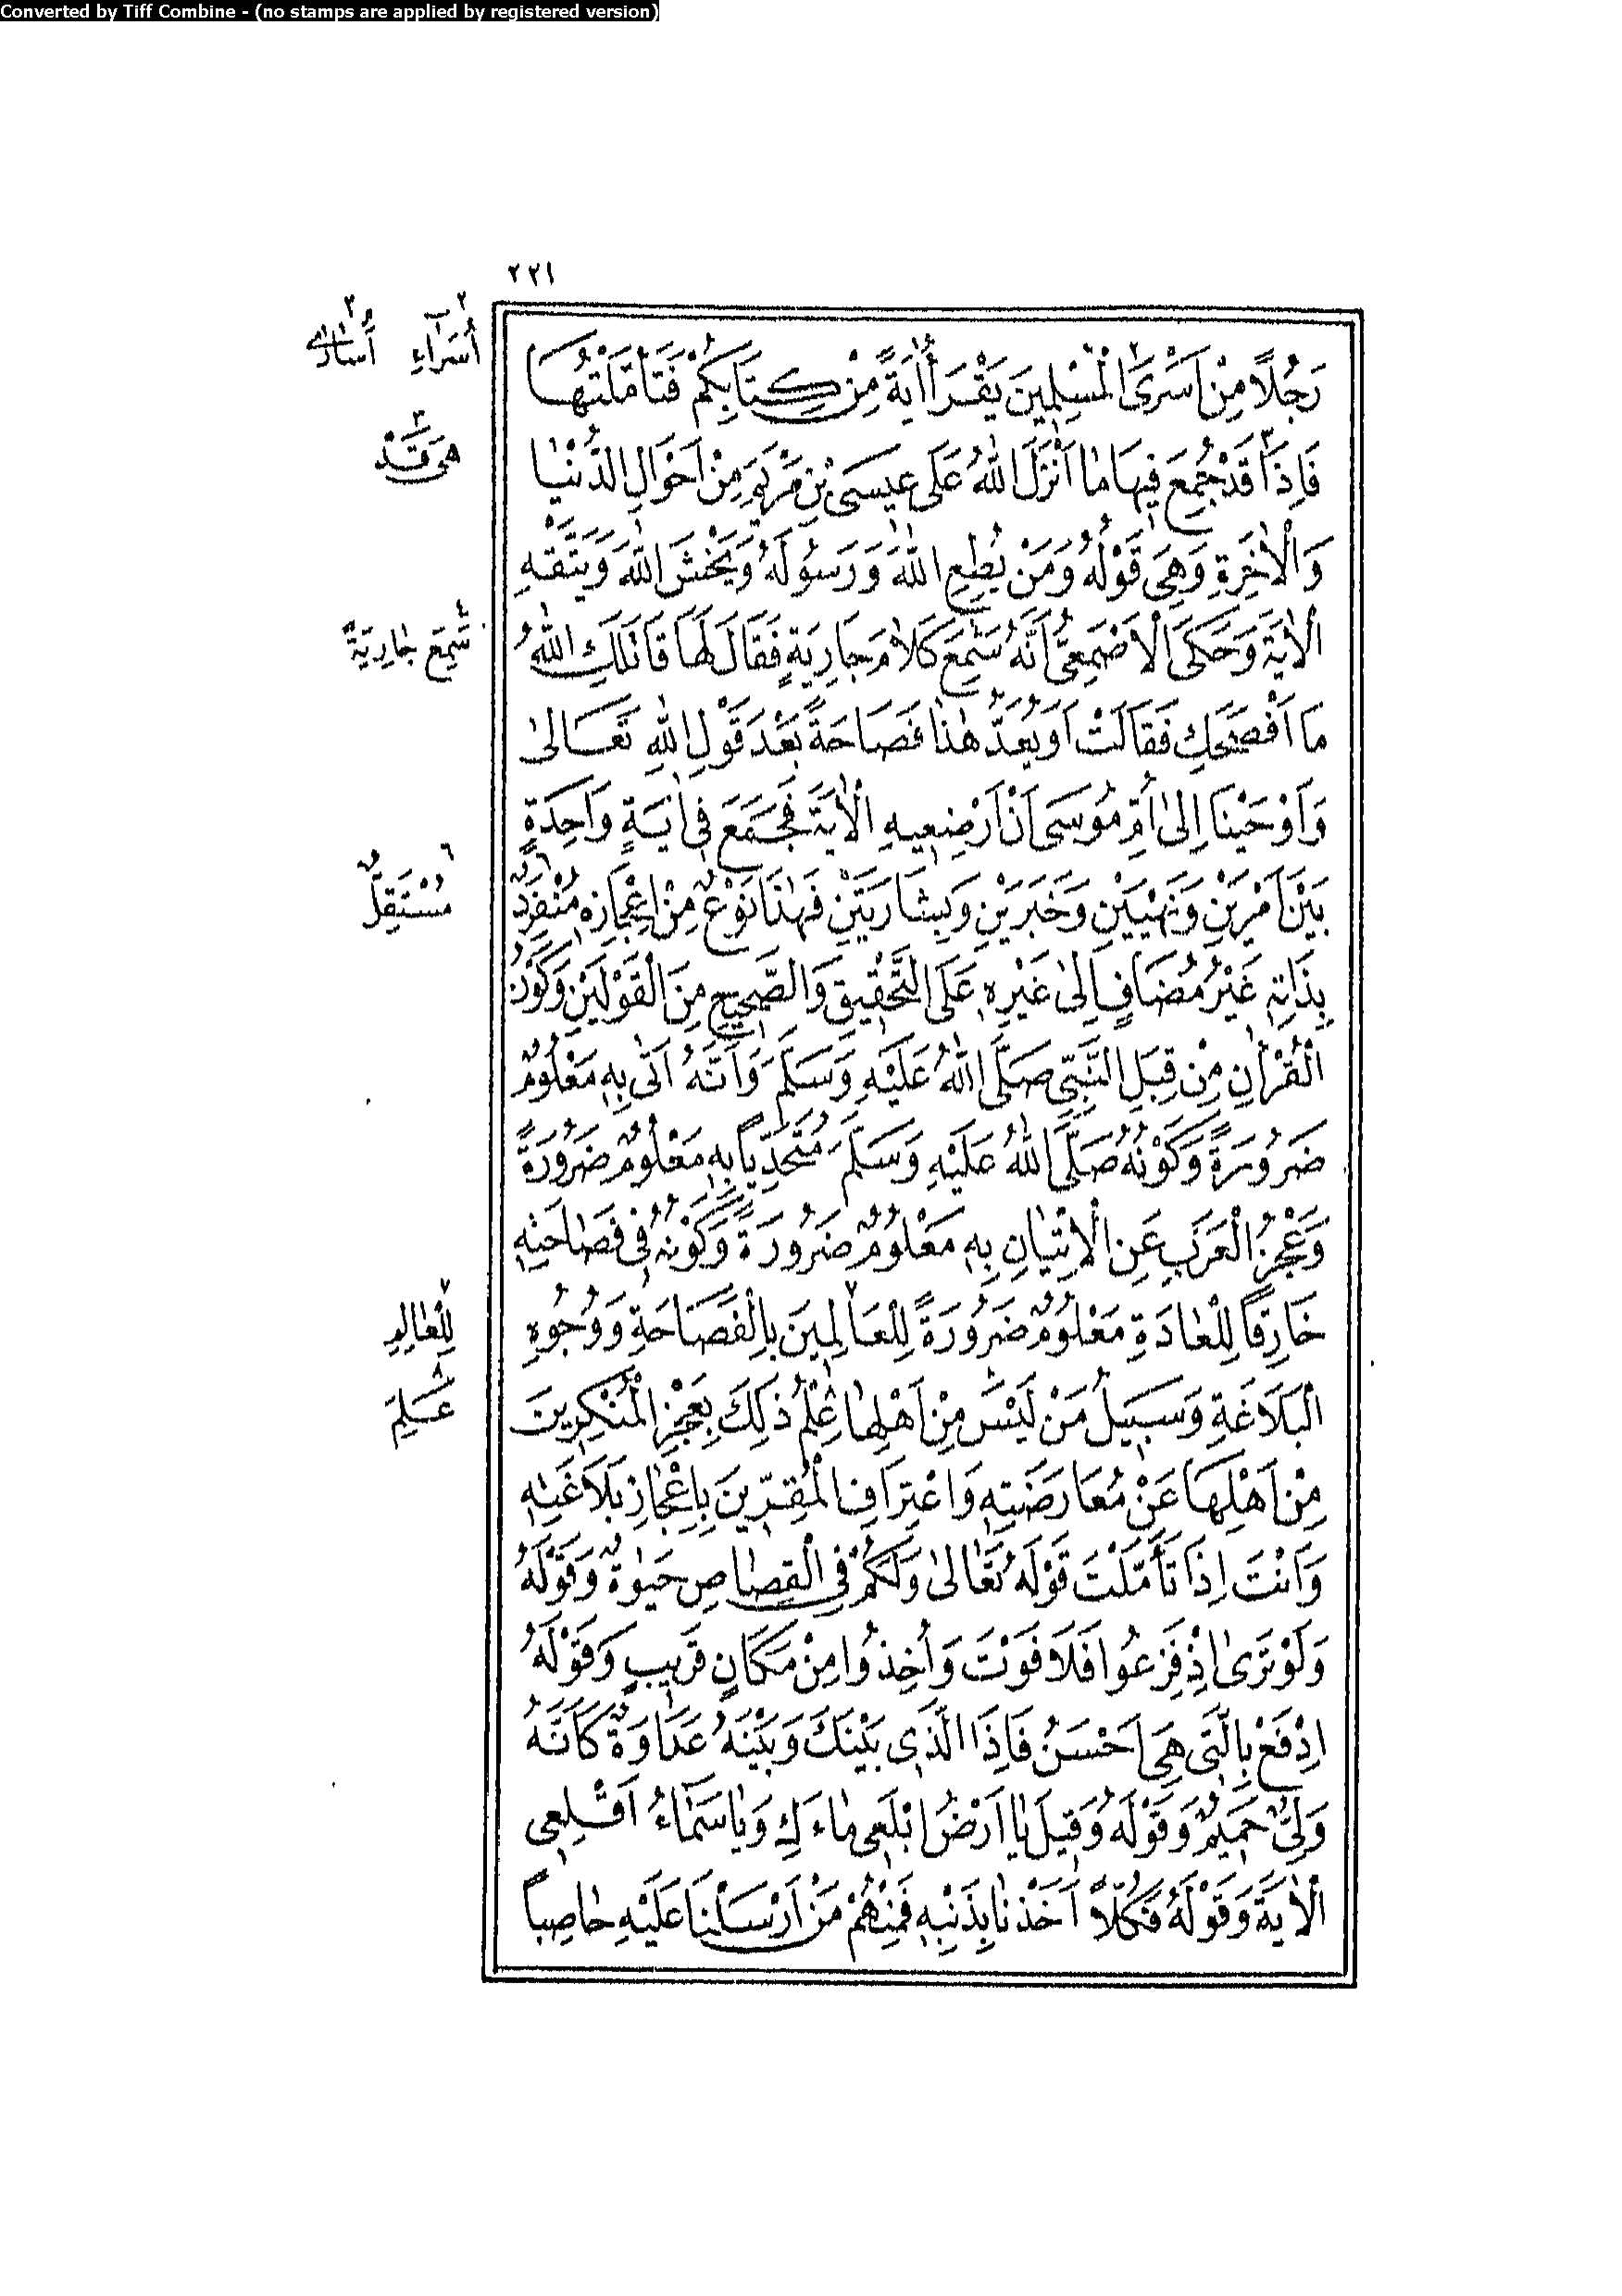 Converted by Tiff Combine - (no stamps are applied by registered version)
٢٢١
رَجُلًا مِنْ اَسْرَى الْمُسْلِمِينَ يَقْرَأُ اٰيَةً مِنْ كِتَابِكُمْ فَتَأَمَّلْتُهَا
فَاِذَا قَدْ جُمِعَ فِيهَا مَا اَنْزَلَ اللّٰهُ عَلَى عِيسَى بْنِ مَرْيَمَ مِنْ اَحْوَالِ الدُّنْيَا
وَالْاٰخِرَةِ وَهِىَ قَوْلُهُ وَمَنْ يُطِعِ اللّٰهَ وَرَسُولَهُ وَيَخْشَ اللّٰهَ وَيَتَّقْهِ
الْاٰيَةَ وَحَكَى الْاَصْمَعِىُّ اَنَّهُ سَمِعَ كَلَامَ جَارِيَةٍ فَقَالَ لَهَا قَاتَلَكِ اللّٰهُ
مَا اَفْصَحَكِ فَقَالَتْ اَوَ يُعَدُّ هٰذَا فَصَاحَةً بَعْدَ قَوْلِ اللّٰهِ تَعَالىٰ
وَاَوْحَيْنَا اِلىٰ اُمِّ مُوسَى اَنْ اَرْضِعِيهِ الْاٰيَةَ فَجَمَعَ فِى اٰيَةٍ وَاحِدَةٍ
بَيْنَ اَمْرَيْنِ وَنَهْيَيْنِ وَخَبَرَيْنِ وَبِشَارَتَيْنِ فَهٰذَا نَوْعٌ مِنْ اِعْجَازِهِ مُنْفَرِدٌ
بِذَاتِهِ غَيْرُ مُضَافٍ اِلىٰ غَيْرِهِ عَلَى التَّحْقِيقِ وَالصَّحِيحِ مِنَ الْقَوْلَيْنِ وَكَوْنُ
الْقُرْاٰنِ مِنْ قِبَلِ النَّبِىِّ صَلَّى اللّٰهُ عَلَيْهِ وَسَلَّمَ وَاَنَّهُ اَتٰى بِهِ مَعْلُومٌ
ضَرُورَةً وَكَوْنُهُ صَلَّى اللّٰهُ عَلَيْهِ وَسَلَّمَ مُتَحَدِّيًا بِهِ مَعْلُومٌ ضَرُورَةً
وَعَجْزُ الْعَرَبِ عَنِ الْاِتْيَانِ بِهِ مَعْلُومٌ ضَرُورَةً وَكَوْنُهُ فِى فَصَاحَتِهِ
خَارِقًا لِلْعَادَةِ مَعْلُومٌ ضَرُورَةً لِلْعَالِمِينَ بِالْفَصَاحَةِ وَوُجُوهِ
الْبَلَاغَةِ وَسَبِيلُ مَنْ لَيْسَ مِنْ اَهْلِهَا عِلْمُ ذٰلِكَ بِعَجْزِ الْمُنْكِرِينَ
مِنْ اَهْلِهَا عَنْ مُعَارَضَتِهِ وَاعْتِرَافِ الْمُقِرِّينَ بِاِعْجَازِ بَلَاغَتِهِ
وَاَنْتَ اِذَا تَأَمَّلْتَ قَوْلَهُ تَعَالىٰ وَلَكُمْ فِى الْقِصَاصِ حَيٰوةٌ وَقَوْلَهُ
وَلَوْ تَرىٰ اِذْ فَزِعُوا فَلَا فَوْتَ وَاُخِذُوا مِنْ مَكَانٍ قَرِيبٍ وَقَوْلَهُ
اِدْفَعْ بِالَّتِى هِىَ اَحْسَنُ فَاِذَا الَّذِى بَيْنَكَ وَبَيْنَهُ عَدَاوَةٌ كَاَنَّهُ
وَلِىٌّ حَمِيمٌ وَقَوْلَهُ وَقِيلَ يَا اَرْضُ ابْلَعِى مَاءَكِ وَيَا سَمَاءُ اَقْلِعِى
الْاٰيَةَ وَقَوْلَهُ فَكُلًّا اَخَذْنَا بِذَنْبِهِ فَمِنْهُمْ مَنْ اَرْسَلْنَا عَلَيْهِ حَاصِبًا
٢ اُسَرَاءِ ٢ اُسَارٰى
٣ هِىَ قَدْ
٤ سَمِعَ جَارِيَةً
٦ مُسْتَقِلٌّ
٧ لِلْعَالِمِ
٨ عَلِمَ